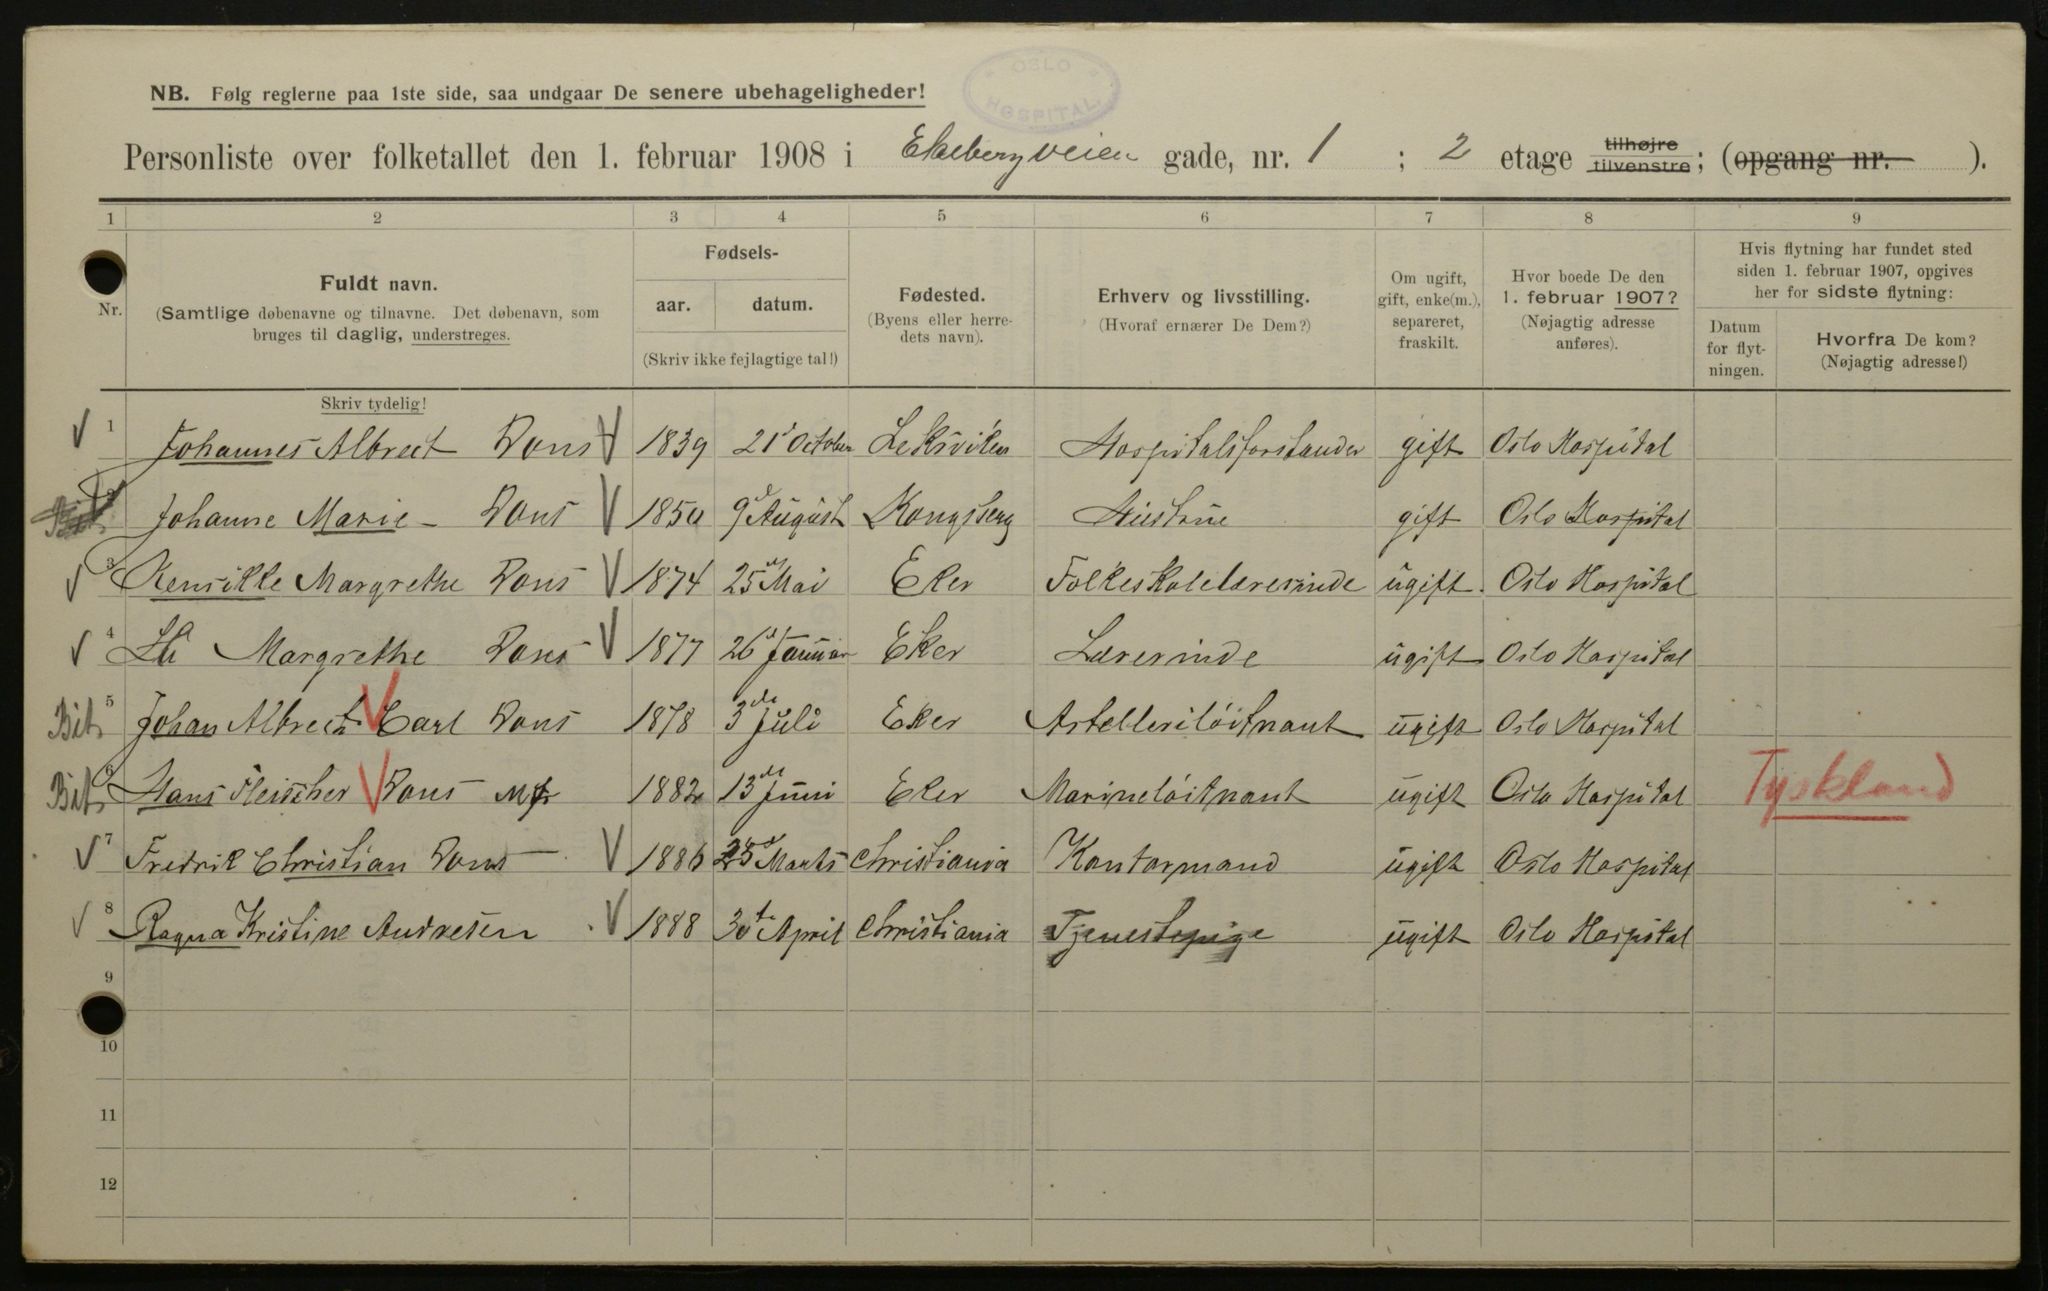 OSLO HOSPITAL
NB. Følg reglerne paa 1ste side, saa undgaar De senere ubehageligheder!
Personliste over folketallet den 1. februar 1908 i Ekebergveien gade, nr. 1 ; 2 etage tilhøjre tilvenstre; (opgang nr. ).
1 2 3 4 5 6 7 8 9
Nr.
Fuldt navn.
(Samtlige døbenavne og tilnavne. Det døbenavn, som
bruges til daglig, understreges.
Fødsels-
aar. datum.
(Skriv ikke fejlagtige tal!)
Fødested.
(Byens eller herre-
dets navn).
Erhverv og livsstilling.
(Hvoraf ernærer De Dem?)
Om ugift,
gift, enke(m.),
separeret,
fraskilt.
Hvor boede De den
1. februar 1907?
(Nøjagtig adresse
anføres).
Hvis flytning har fundet sted
siden 1. februar 1907, opgives
her for sidste flytning:
Datum
for flyt-
ningen.
Hvorfra De kom?
(Nøjagtig adresse!)
Skriv tydelig!
1 Johannes Albrect Dons 1839 21 October Leksviken Hospitalsforstander gift Oslo Hospital
2 Johanne Marie Dons 1850 9d August Kongsberg Hustrue gift Oslo Hospital
3 Henrikke Margrethe Dons 1874 25d Mai Eker Folkeskolelærerinde ugift Oslo Hospital
4 Margrethe Dons 1877 26d Januar Eker Lærerinde ugift Oslo Hospital
Bit. 5 Johan Albrect Carl Dons 1878 3de Juli Eker Artelleriløitnant ugift Oslo Hospital
Bit. 6 Hans Fleischer Dons 1882 13de Juni Eker Marineløitnant ugift Oslo Hospital Tyskland
7 Fredrik Christian Dons 1886 25d Marts Christiania Kontormand ugift Oslo Hospital
8 Ragna Kristine Andresen 1888 30te April Christiania Tjenestepige ugift Oslo Hospital
9
10
11
12